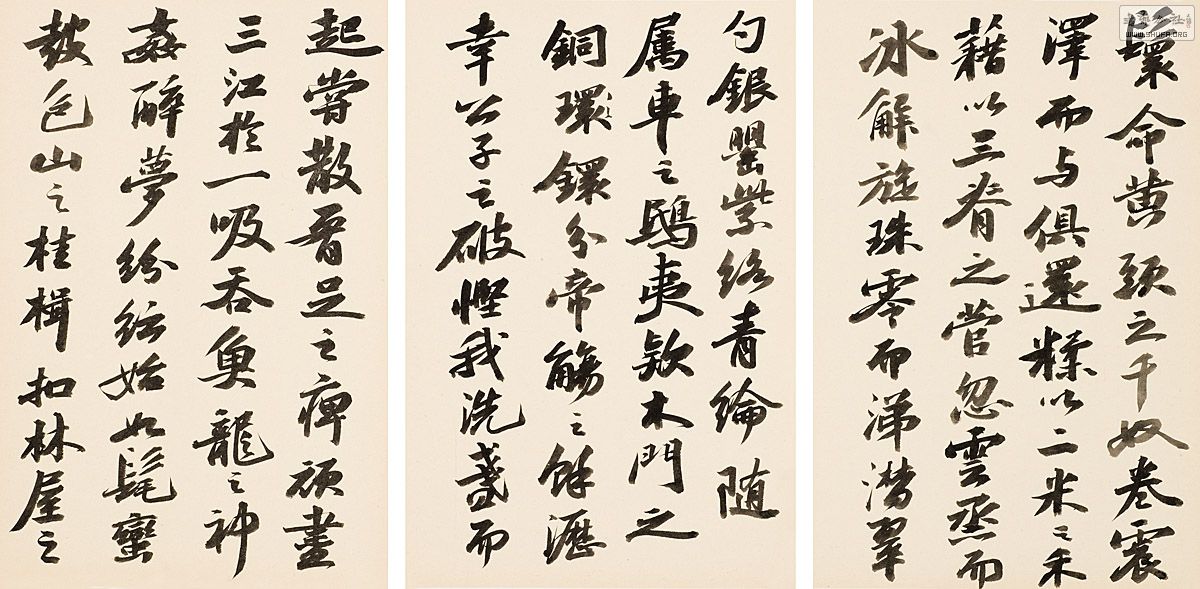 鬟命黄頭之千奴卷震
澤而与俱還糅以二米之禾
藉以三脊之菅忽雲烝而
冰解旋珠零而涕潸翠
勺銀罌紫絡青綸随
属車之鴟夷欵木門之
銅環鐶分帝觴之餘瀝
幸公子之破慳我洗盞而
起嘗散腰足之痺頑盡
三江於一吸吞魚龍之神
姦醉夢紛紜始如髦蠻
鼓包山之桂楫扣林屋之
WWW.SHUFA.ORG